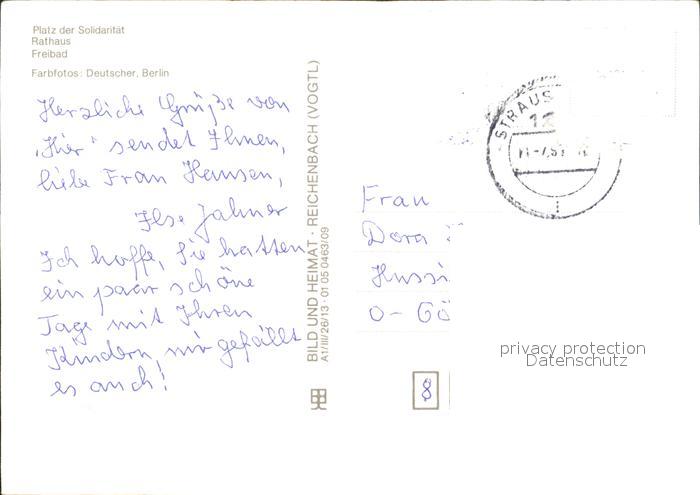 Platz der Solidarität
Rathaus
Freibad
Farbfotos: Deutscher, Berlin
Herzliche Grüße von
„Hier“ sendet Ihnen,
liebe Frau Hansen,
Ilse Jahner
Ich hoffe, Sie hatten
ein paar schöne
Tage mit Ihren
Kindern, mir gefällt
es auch!
BILD UND HEIMAT · REICHENBACH (VOGTL)
A1/III/26/13 · 01 05 0463/09
STRAUS
Frau
Dora
Hussi
O- Gö
8
privacy protection
Datenschutz